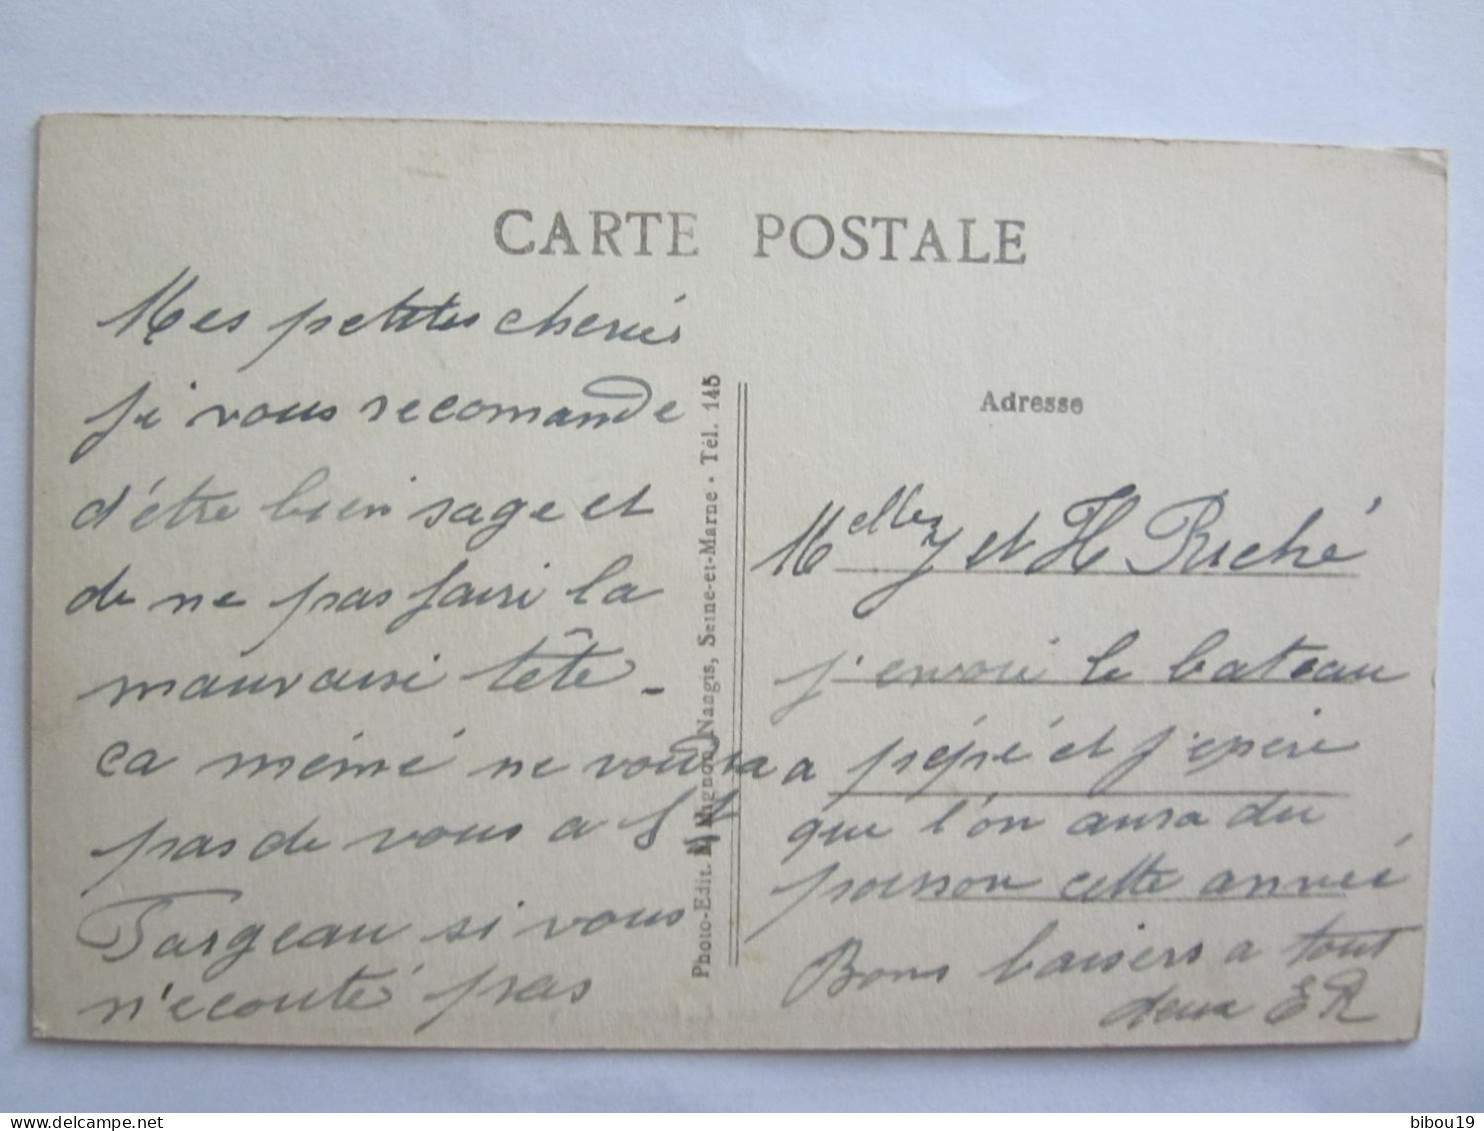 CARTE POSTALE
Mes petites cheries
je vous recomande
d'être bien sage et
de ne pas faire la
mauvaise tête -
ca mémé ne voudra
pas de vous a St
Fargeau si vous
n'ecouté pas
Photo-Edit. Mignon, Nangis, Seine-et-Marne - Tél. 145
Adresse
Melles Y et H Ruché
j'envoie le bateau
a pépé et j'epere
que l'on aura du
poisson cette année
Bons baisers a tout
deux ER
bibou19